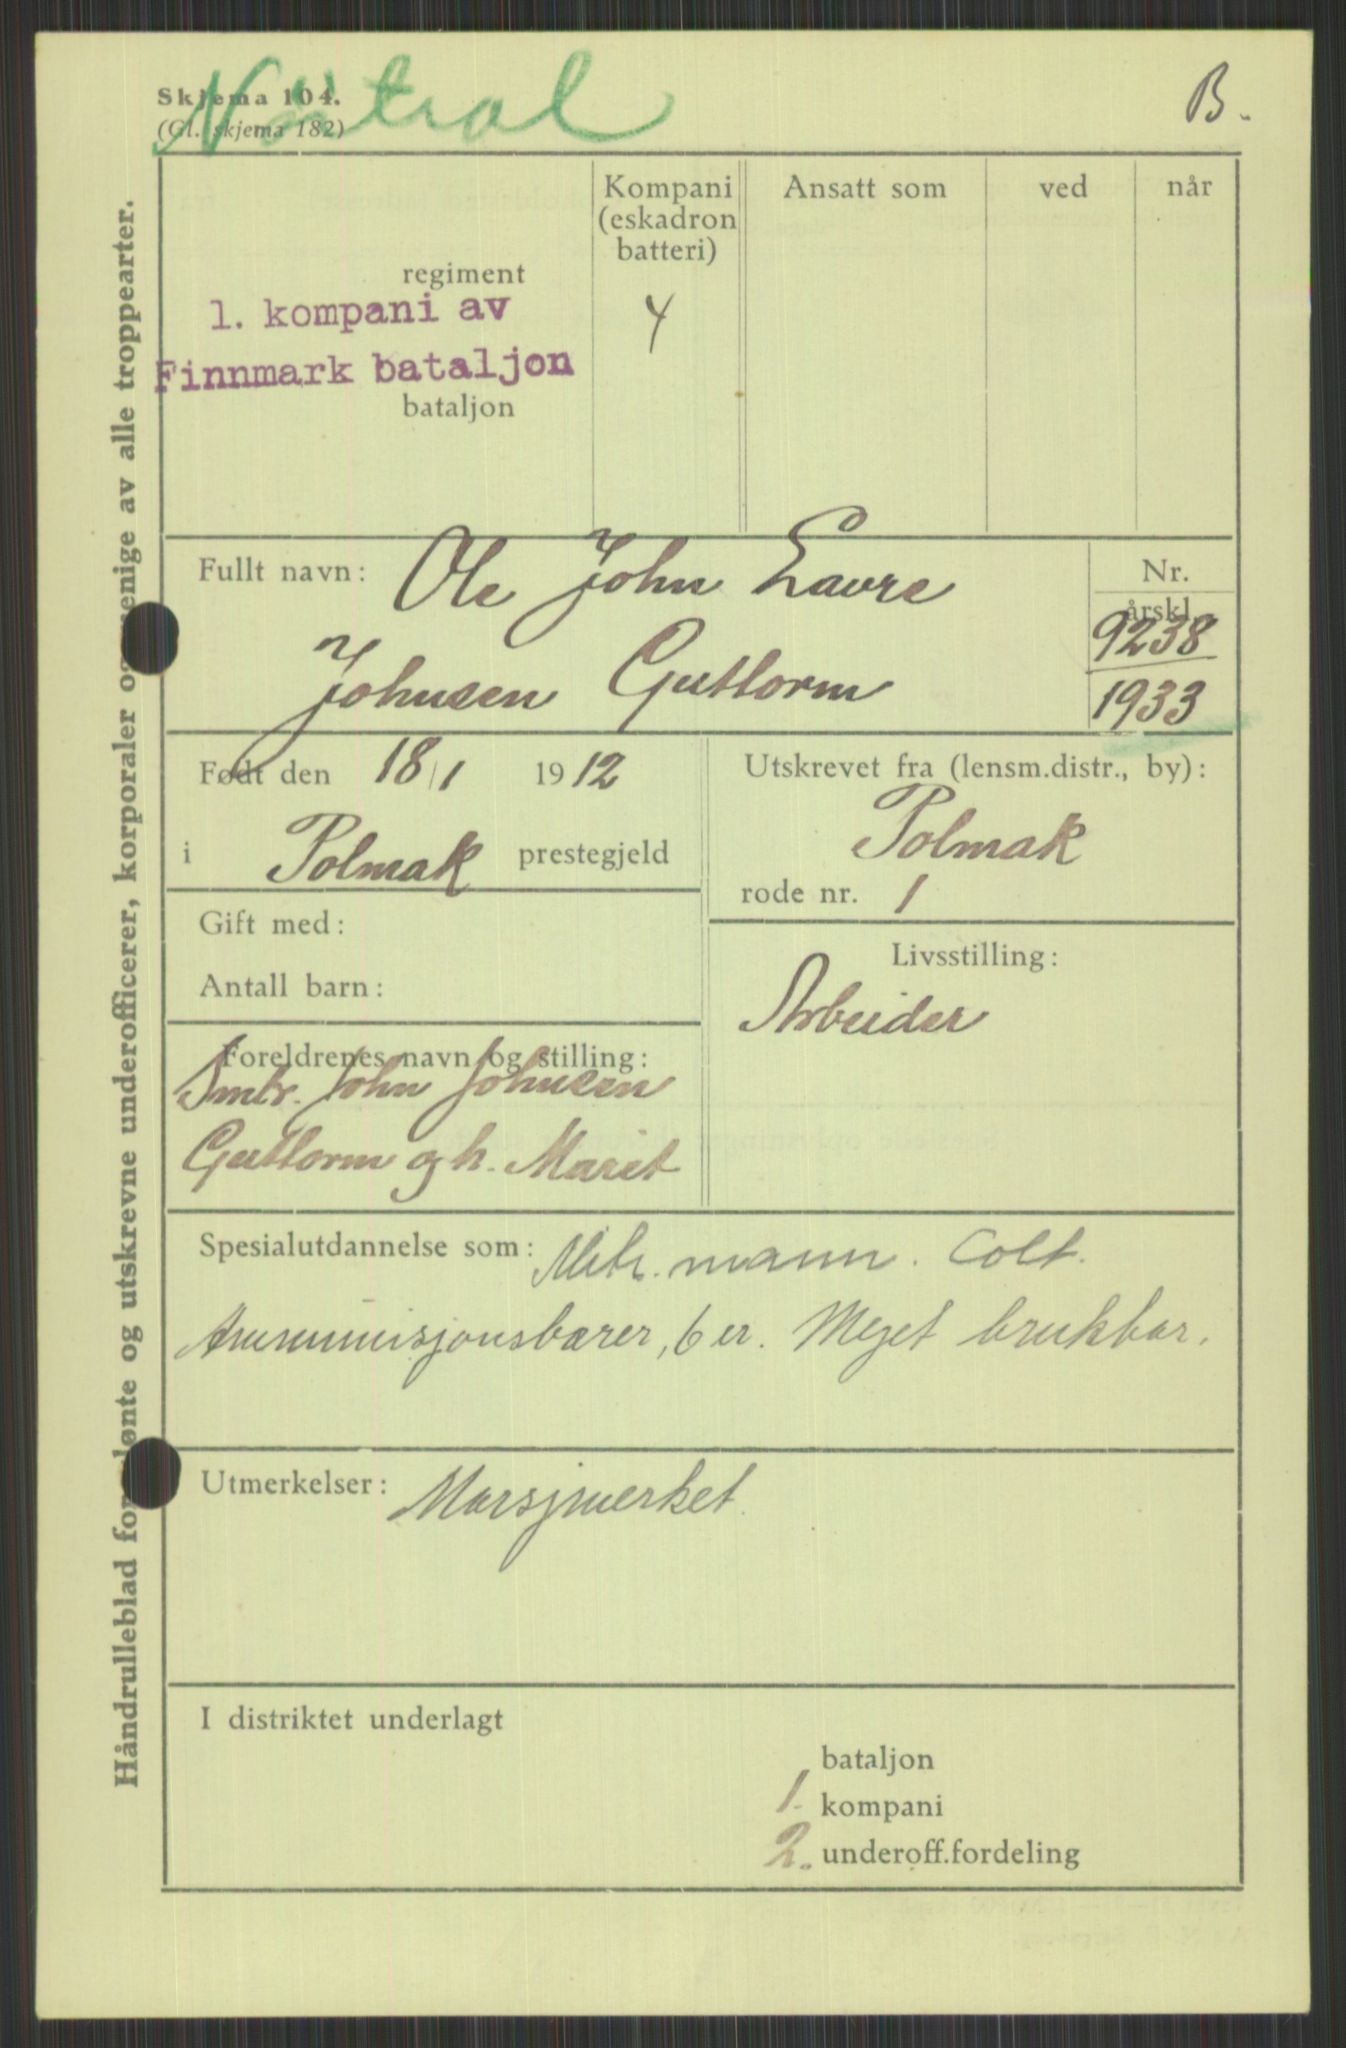 Nøitral
Skjema 104.
(Gl. skjema 182)
B.
Håndrulleblad for lønte og utskrevne underofficerer, korporaler og menige av alle troppearter.
regiment
1. kompani av
Finnmark bataljon
bataljon
Kompani
(eskadron
batteri)
4
Ansatt som
ved
når
Fullt navn: Ole John Lavre
Johnsen Guttorm
Nr.
årskl.
9238
1933
Født den 18/1 1912
i Polmak prestegjeld
Utskrevet fra (lensm.distr., by):
Polmak
rode nr. 1
Gift med:
Antall barn:
Livsstilling:
Arbeider
Foreldrenes navn og stilling:
Smbr. John Johnsen
Guttorm og h. Marit
Spesialutdannelse som: Mitr. mann. Colt.
Ammunisjonsbærer, 6 er. Meget brukbar.
Utmerkelser: Marsjmerket
I distriktet underlagt
bataljon
1. kompani
2. underoff.fordeling